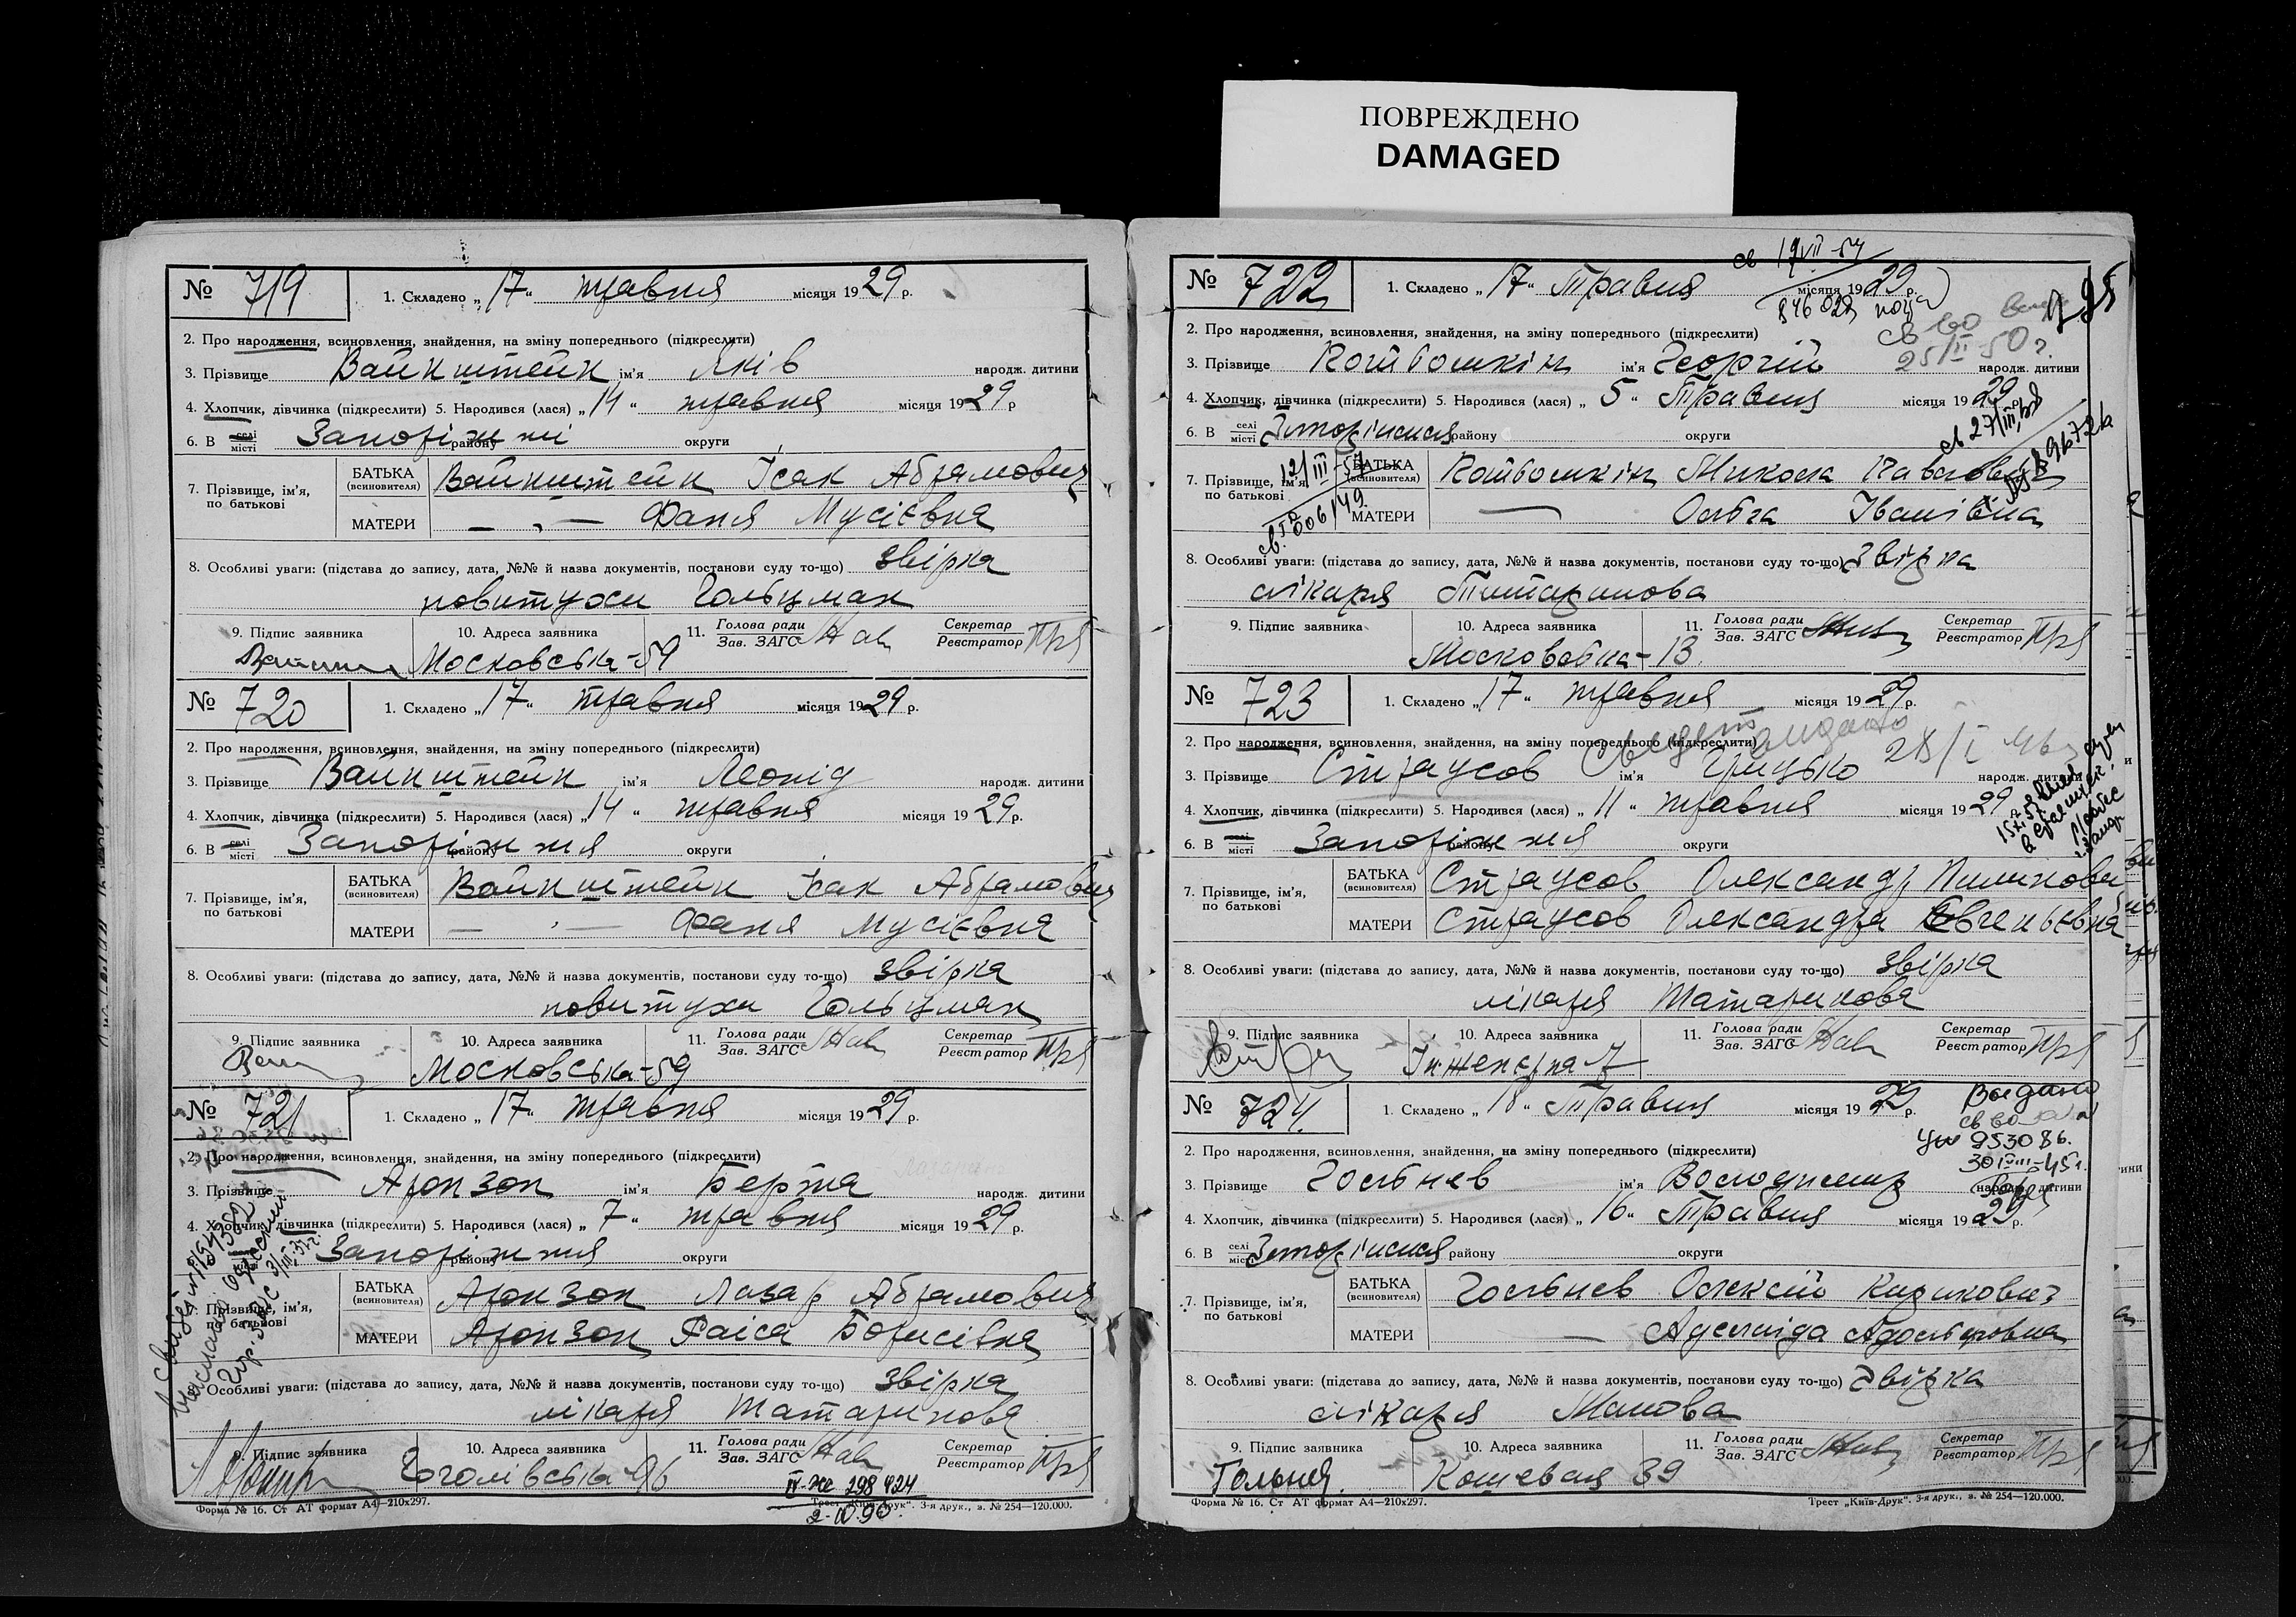 ПОВРЕЖДЕНО
DAMAGED
№ 719 1. Складено „17“ травня місяця 1929 р.
2. Про народження, всиновлення, знайдення, на зміну попереднього (підкреслити)
3. Прізвище Вайнштейн ім'я Яків народж. дитини
4. Хлопчик, дівчинка (підкреслити) 5. Народився (лася) „14“ травня місяця 1929 р
6. В селі місті Запоріжжі району округи
7. Прізвище, ім'я, по батькові БАТЬКА (всиновителя) Вайнштейн Ісак Абрамович
МАТЕРИ — „ — Фаня Мусієвна
8. Особливі уваги: (підстава до запису, дата, №№ й назва документів, постанови суду то-що) звірка
повитухи Гольцман
9. Підпис заявника 10. Адреса заявника 11. Голова ради Зав. ЗАГС Секретар Реєстратор
Московська-59
№ 720 1. Складено „17“ травня місяця 1929 р.
2. Про народження, всиновлення, знайдення, на зміну попереднього (підкреслити)
3. Прізвище Вайнштейн ім'я Леонід народж. дитини
4. Хлопчик, дівчинка (підкреслити) 5. Народився (лася) „14“ травня місяця 1929 р.
6. В селі місті Запоріжжя району округи
7. Прізвище, ім'я, по батькові БАТЬКА (всиновителя) Вайнштейн Ісак Абрамович
МАТЕРИ — „ — Фаня Мусієвна
8. Особливі уваги: (підстава до запису, дата, №№ й назва документів, постанови суду то-що) звірка
повитухи Гольцман
9. Підпис заявника 10. Адреса заявника 11. Голова ради Зав. ЗАГС Секретар Реєстратор
Московська-59
№ 721 1. Складено „17“ травня місяця 1929 р.
2. Про народження, всиновлення, знайдення, на зміну попереднього (підкреслити)
3. Прізвище Аронзон ім'я Берта народж. дитини
4. Хлопчик, дівчинка (підкреслити) 5. Народився (лася) „7“ травня місяця 1929 р.
Запоріжжя району округи
7. Прізвище, ім'я, по батькові БАТЬКА (всиновителя) Аронзон Лазар Абрамович
МАТЕРИ Аронзон Раіса Борисівна
8. Особливі уваги: (підстава до запису, дата, №№ й назва документів, постанови суду то-що) звірка
лікаря Татаринова
9. Підпис заявника 10. Адреса заявника 11. Голова ради Зав. ЗАГС Секретар Реєстратор
Гоголівська 96
IV-ЖС 298424
Форма № 16. Ст АТ формат А4—210х297. Трест „Київ-Друк“. 3-я друк., з. № 254—120.000.
№ 722 1. Складено „17“ Травня місяця 1929 р.
2. Про народження, всиновлення, знайдення, на зміну попереднього (підкреслити)
3. Прізвище ім'я Георгій народж. дитини
4. Хлопчик, дівчинка (підкреслити) 5. Народився (лася) „5“ Травня місяця 1929
6. В селі місті Запоріжжя району округи
7. Прізвище, ім'я, по батькові БАТЬКА (всиновителя) Микола Павлович
МАТЕРИ — Ольга Іванівна
8. Особливі уваги: (підстава до запису, дата, №№ й назва документів, постанови суду то-що) Звірка
лікаря Татаринова
9. Підпис заявника 10. Адреса заявника 11. Голова ради Зав. ЗАГС Секретар Реєстратор
Московська-13
№ 723 1. Складено „17“ травня місяця 1929 р.
2. Про народження, всиновлення, знайдення, на зміну попереднього (підкреслити)
3. Прізвище Страусов ім'я Грицько народж. дитини
4. Хлопчик, дівчинка (підкреслити) 5. Народився (лася) „11“ травня місяця 1929
6. В селі місті Запоріжжя району округи
7. Прізвище, ім'я, по батькові БАТЬКА (всиновителя) Страусов Олександр
МАТЕРИ Страусов Олександра Євгеньєвна
8. Особливі уваги: (підстава до запису, дата, №№ й назва документів, постанови суду то-що) звірка
лікаря Татаринова
9. Підпис заявника 10. Адреса заявника 11. Голова ради Зав. ЗАГС Секретар Реєстратор
Інженєрна 7
№ 724 1. Складено „18“ Травня місяця 1929 р.
Выдано
953086.
2. Про народження, всиновлення, знайдення, на зміну попереднього (підкреслити)
3. Прізвище Гольнев ім'я Володимир народж. дитини
4. Хлопчик, дівчинка (підкреслити) 5. Народився (лася) „16“ Травня місяця 1929 р.
6. В селі місті Запоріжжя району округи
7. Прізвище, ім'я, по батькові БАТЬКА (всиновителя) Гольнев Олексій Кирилович
МАТЕРИ — Аделаїда Адольфовна
8. Особливі уваги: (підстава до запису, дата, №№ й назва документів, постанови суду то-що) Звірка
лікаря
9. Підпис заявника 10. Адреса заявника 11. Голова ради Зав. ЗАГС Секретар Реєстратор
Кошевая 39
Форма № 16. Ст АТ формат А4—210х297. Трест „Київ-Друк“. 3-я друк., з. № 254—120.000.